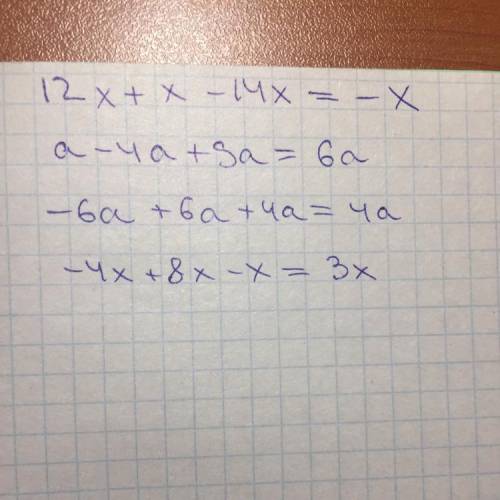 12x + x - 14x = -x
a - 4a + 9a = 6a
-6a + 6a + 4a = 4a
-4x + 8x - x = 3x